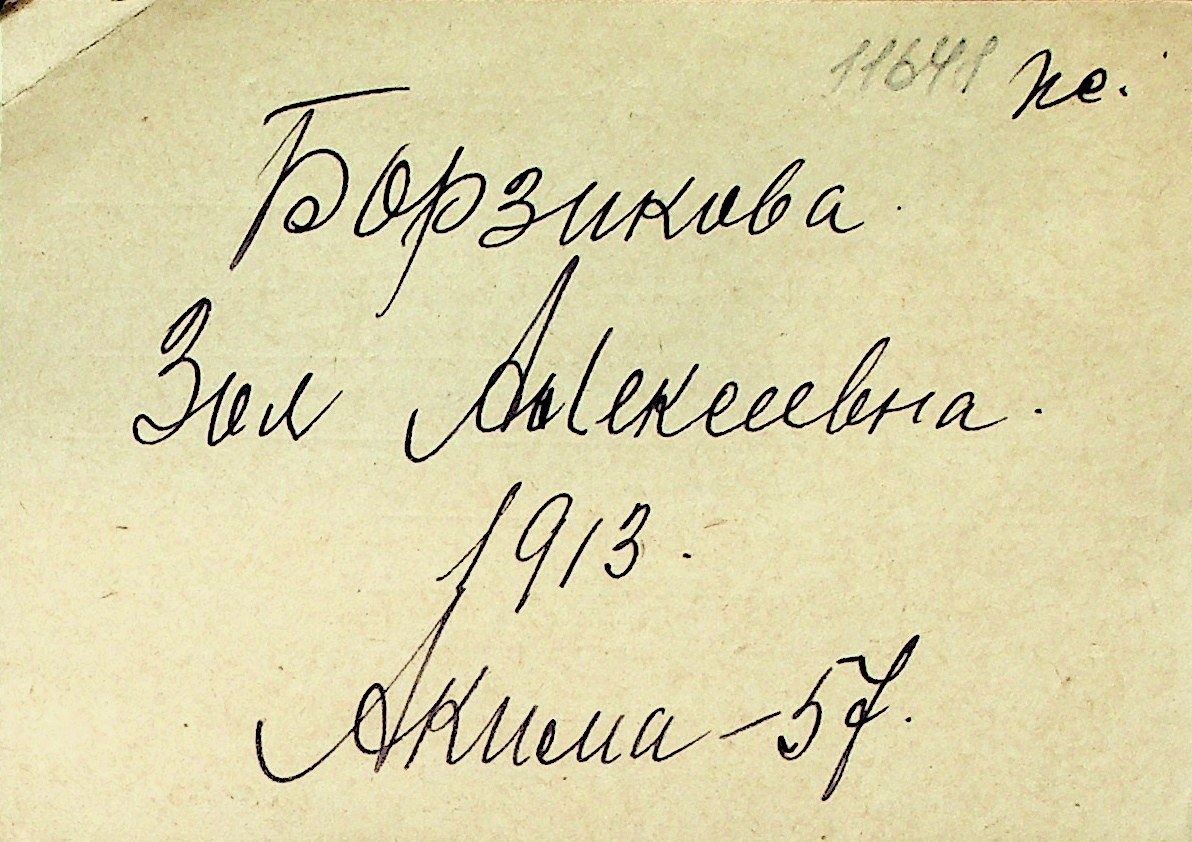 11641 пс.
Борзикова.
Зоя Алексеевна.
1913.
Акима - 57.